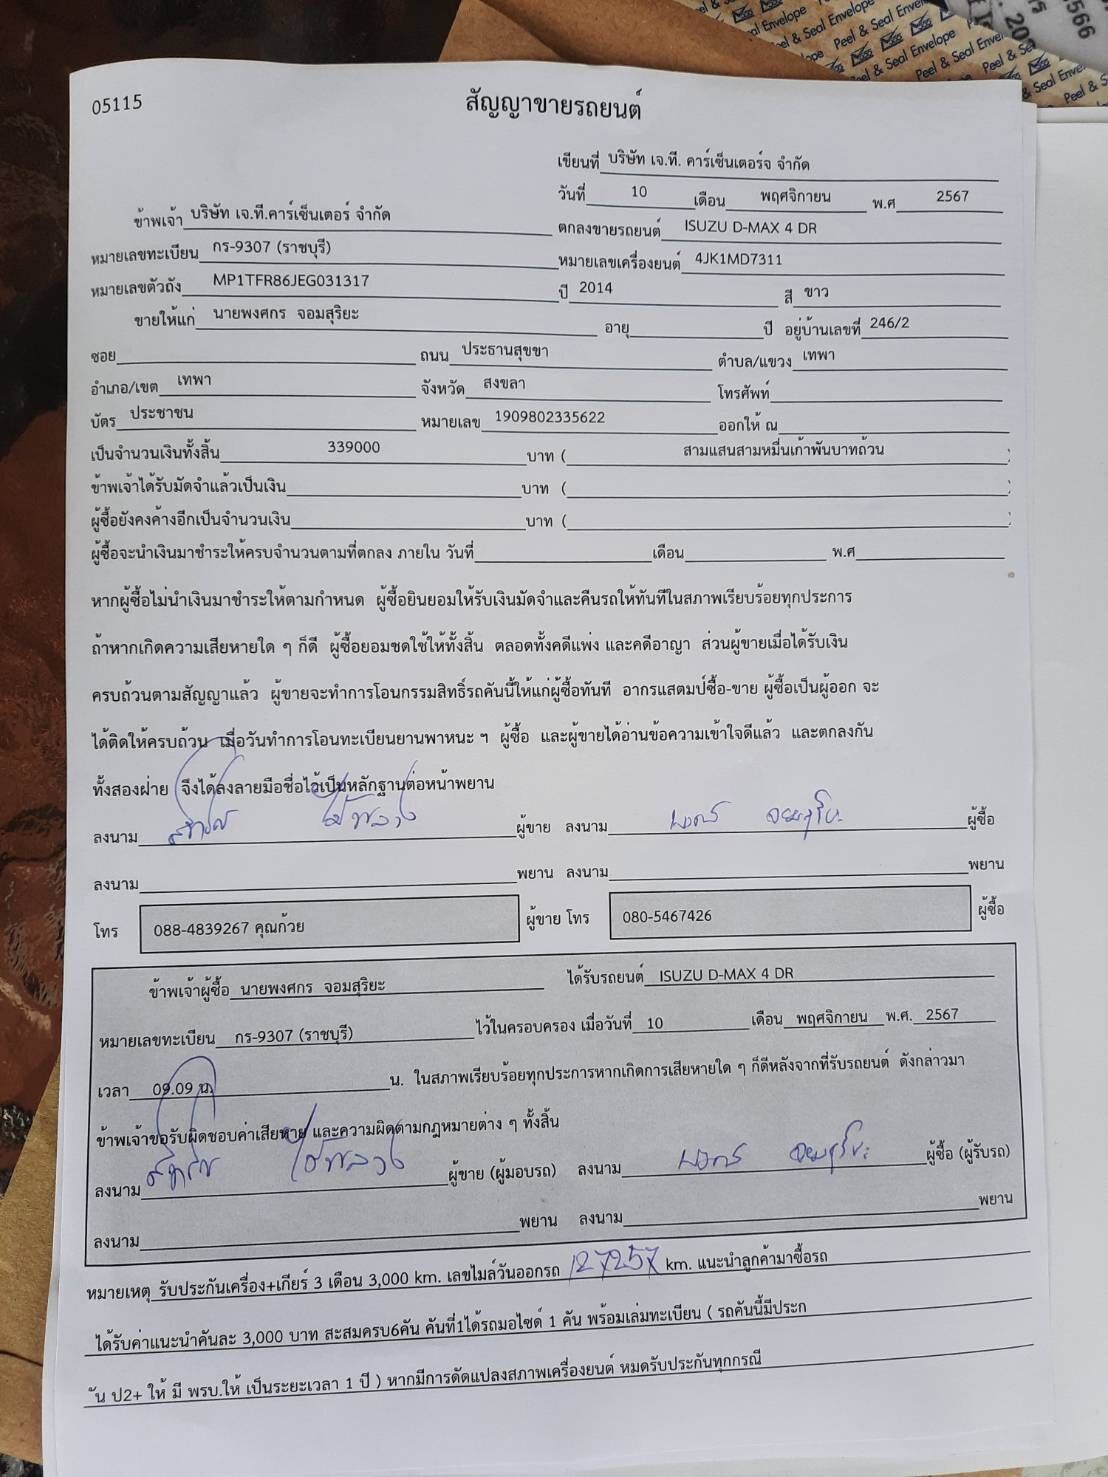 Peel & Seal Envelope
2566
05115
สัญญาขายรถยนต์
เขียนที่ บริษัท เจ.ที. คาร์เซ็นเตอร์จ จำกัด
วันที่ 10 เดือน พฤศจิกายน พ.ศ 2567
ข้าพเจ้า บริษัท เจ.ที.คาร์เซ็นเตอร์ จำกัด ตกลงขายรถยนต์ ISUZU D-MAX 4 DR
หมายเลขทะเบียน กร-9307 (ราชบุรี) หมายเลขเครื่องยนต์ 4JK1MD7311
หมายเลขตัวถัง MP1TFR86JEG031317 ปี 2014 สี ขาว
ขายให้แก่ นายพงศกร จอมสุริยะ อายุ ปี อยู่บ้านเลขที่ 246/2
ซอย ถนน ประธานสุขขา ตำบล/แขวง เทพา
อำเภอ/เขต เทพา จังหวัด สงขลา โทรศัพท์
บัตร ประชาชน หมายเลข 1909802335622 ออกให้ ณ
เป็นจำนวนเงินทั้งสิ้น 339000 บาท ( สามแสนสามหมื่นเก้าพันบาทถ้วน )
ข้าพเจ้าได้รับมัดจำแล้วเป็นเงิน บาท ( )
ผู้ซื้อยังคงค้างอีกเป็นจำนวนเงิน บาท ( )
ผู้ซื้อจะนำเงินมาชำระให้ครบจำนวนตามที่ตกลง ภายใน วันที่ เดือน พ.ศ
หากผู้ซื้อไม่นำเงินมาชำระให้ตามกำหนด ผู้ซื้อยินยอมให้รับเงินมัดจำและคืนรถให้ทันทีในสภาพเรียบร้อยทุกประการ
ถ้าหากเกิดความเสียหายใด ๆ ก็ดี ผู้ซื้อยอมชดใช้ให้ทั้งสิ้น ตลอดทั้งคดีแพ่ง และคดีอาญา ส่วนผู้ขายเมื่อได้รับเงิน
ครบถ้วนตามสัญญาแล้ว ผู้ขายจะทำการโอนกรรมสิทธิ์รถคันนี้ให้แก่ผู้ซื้อทันที อากรแสตมป์ซื้อ-ขาย ผู้ซื้อเป็นผู้ออก จะ
ได้ติดให้ครบถ้วน เมื่อวันทำการโอนทะเบียนยานพาหนะ ฯ ผู้ซื้อ และผู้ขายได้อ่านข้อความเข้าใจดีแล้ว และตกลงกัน
ทั้งสองฝ่าย จึงได้ลงลายมือชื่อไว้เป็นหลักฐานต่อหน้าพยาน
ลงนาม ผู้ขาย ลงนาม พงศกร จอมสุริยะ ผู้ซื้อ
ลงนาม พยาน ลงนาม พยาน
โทร 088-4839267 คุณก้วย ผู้ขาย โทร 080-5467426 ผู้ซื้อ
ข้าพเจ้าผู้ซื้อ นายพงศกร จอมสุริยะ ได้รับรถยนต์ ISUZU D-MAX 4 DR
หมายเลขทะเบียน กร-9307 (ราชบุรี) ไว้ในครอบครอง เมื่อวันที่ 10 เดือน พฤศจิกายน พ.ศ. 2567
เวลา 09.09 น. น. ในสภาพเรียบร้อยทุกประการหากเกิดการเสียหายใด ๆ ก็ดีหลังจากที่รับรถยนต์ ดังกล่าวมา
ข้าพเจ้าขอรับผิดชอบค่าเสียหาย และความผิดตามกฎหมายต่าง ๆ ทั้งสิ้น
ลงนาม ผู้ขาย (ผู้มอบรถ) ลงนาม พงศกร จอมสุริยะ ผู้ซื้อ (ผู้รับรถ)
ลงนาม พยาน ลงนาม พยาน
หมายเหตุ รับประกันเครื่อง+เกียร์ 3 เดือน 3,000 km. เลขไมล์วันออกรถ 127257 km. แนะนำลูกค้ามาซื้อรถ
ได้รับค่าแนะนำคันละ 3,000 บาท สะสมครบ6คัน คันที่1ได้รถมอไซด์ 1 คัน พร้อมเล่มทะเบียน ( รถคันนี้มีประก
ัน ป2+ ให้ มี พรบ.ให้ เป็นระยะเวลา 1 ปี ) หากมีการดัดแปลงสภาพเครื่องยนต์ หมดรับประกันทุกกรณี